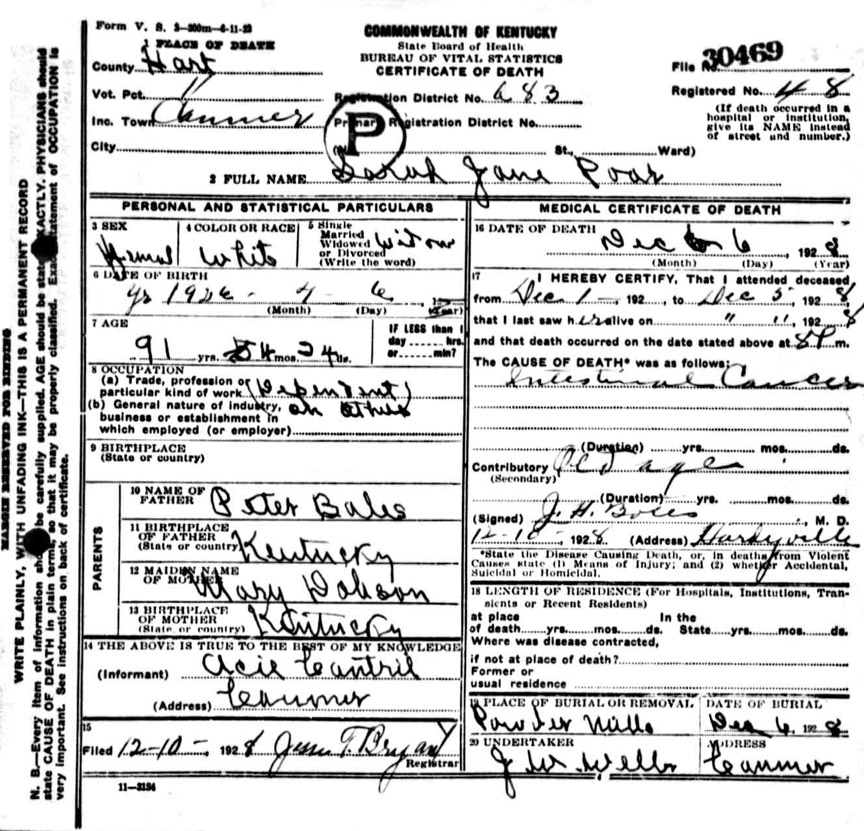 Form V. S. 2-200m-4-11-23
COMMONWEALTH OF KENTUCKY
State Board of Health
BUREAU OF VITAL STATISTICS
CERTIFICATE OF DEATH
File No. 30469
Registered No. 48
(If death occurred in a
hospital or institution,
give its NAME instead
of street and number.)
1 PLACE OF DEATH
County Hart
Vot. Pct. 11 Registration District No. 683
Inc. Town Canmer Primary Registration District No.
P
City (No. St., Ward)
2 FULL NAME Sarah Jane Poar
PERSONAL AND STATISTICAL PARTICULARS
3 SEX
4 COLOR OR RACE
White
5 Single
Married
Widowed
or Divorced
(Write the word)
6 DATE OF BIRTH
4 6
(Month) (Day) (Year)
7 AGE
91 yrs. mos. ds.
IF LESS than 1
day hrs.
or min?
8 OCCUPATION
(a) Trade, profession or
particular kind of work (Dependent)
(b) General nature of industry, on others
business or establishment in
which employed (or employer)
9 BIRTHPLACE
(State or country)
PARENTS
10 NAME OF
FATHER Peter Bales
11 BIRTHPLACE
OF FATHER
(State or country) Kentucky
12 MAIDEN NAME
OF MOTHER Mary Dobson
13 BIRTHPLACE
OF MOTHER
(State or country) Kentucky
14 THE ABOVE IS TRUE TO THE BEST OF MY KNOWLEDGE
(Informant) Acie Cantril
(Address) Canmer
15
Filed 12-10-, 1928 Jesse T. Bryant
Registrar
11-3184
MEDICAL CERTIFICATE OF DEATH
16 DATE OF DEATH
Dec 6, 1928
(Month) (Day) (Year)
17
I HEREBY CERTIFY, That I attended deceased
from Dec 1 - 192 , to Dec 5, 1928
that I last saw her alive on " ", 1928
and that death occurred on the date stated above at 8 P m.
The CAUSE OF DEATH* was as follows:
Intestinal Cancer
(Duration) yrs. mos. ds.
Contributory Old age
(Secondary)
(Duration) yrs. mos. ds.
(Signed) J. H. , M. D.
12-10-, 1928 (Address) Hardyville
*State the Disease Causing Death, or, in deaths from Violent
Causes state (1) Means of Injury; and (2) whether Accidental,
Suicidal or Homicidal.
18 LENGTH OF RESIDENCE (For Hospitals, Institutions, Tran-
sients or Recent Residents)
at place In the
of death yrs. mos. ds. State yrs. mos. ds.
Where was disease contracted,
if not at place of death?
Former or
usual residence
19 PLACE OF BURIAL OR REMOVAL
Powder Mills
DATE OF BURIAL
Dec 6, 1928
20 UNDERTAKER
J. W. Wells
ADDRESS
Canmer
MARGIN RESERVED FOR BINDING
WRITE PLAINLY, WITH UNFADING INK—THIS IS A PERMANENT RECORD
N. B.—Every item of information should be carefully supplied. AGE should be stated EXACTLY. PHYSICIANS should
state CAUSE OF DEATH in plain terms, so that it may be properly classified. Exact statement of OCCUPATION is
very important. See instructions on back of certificate.